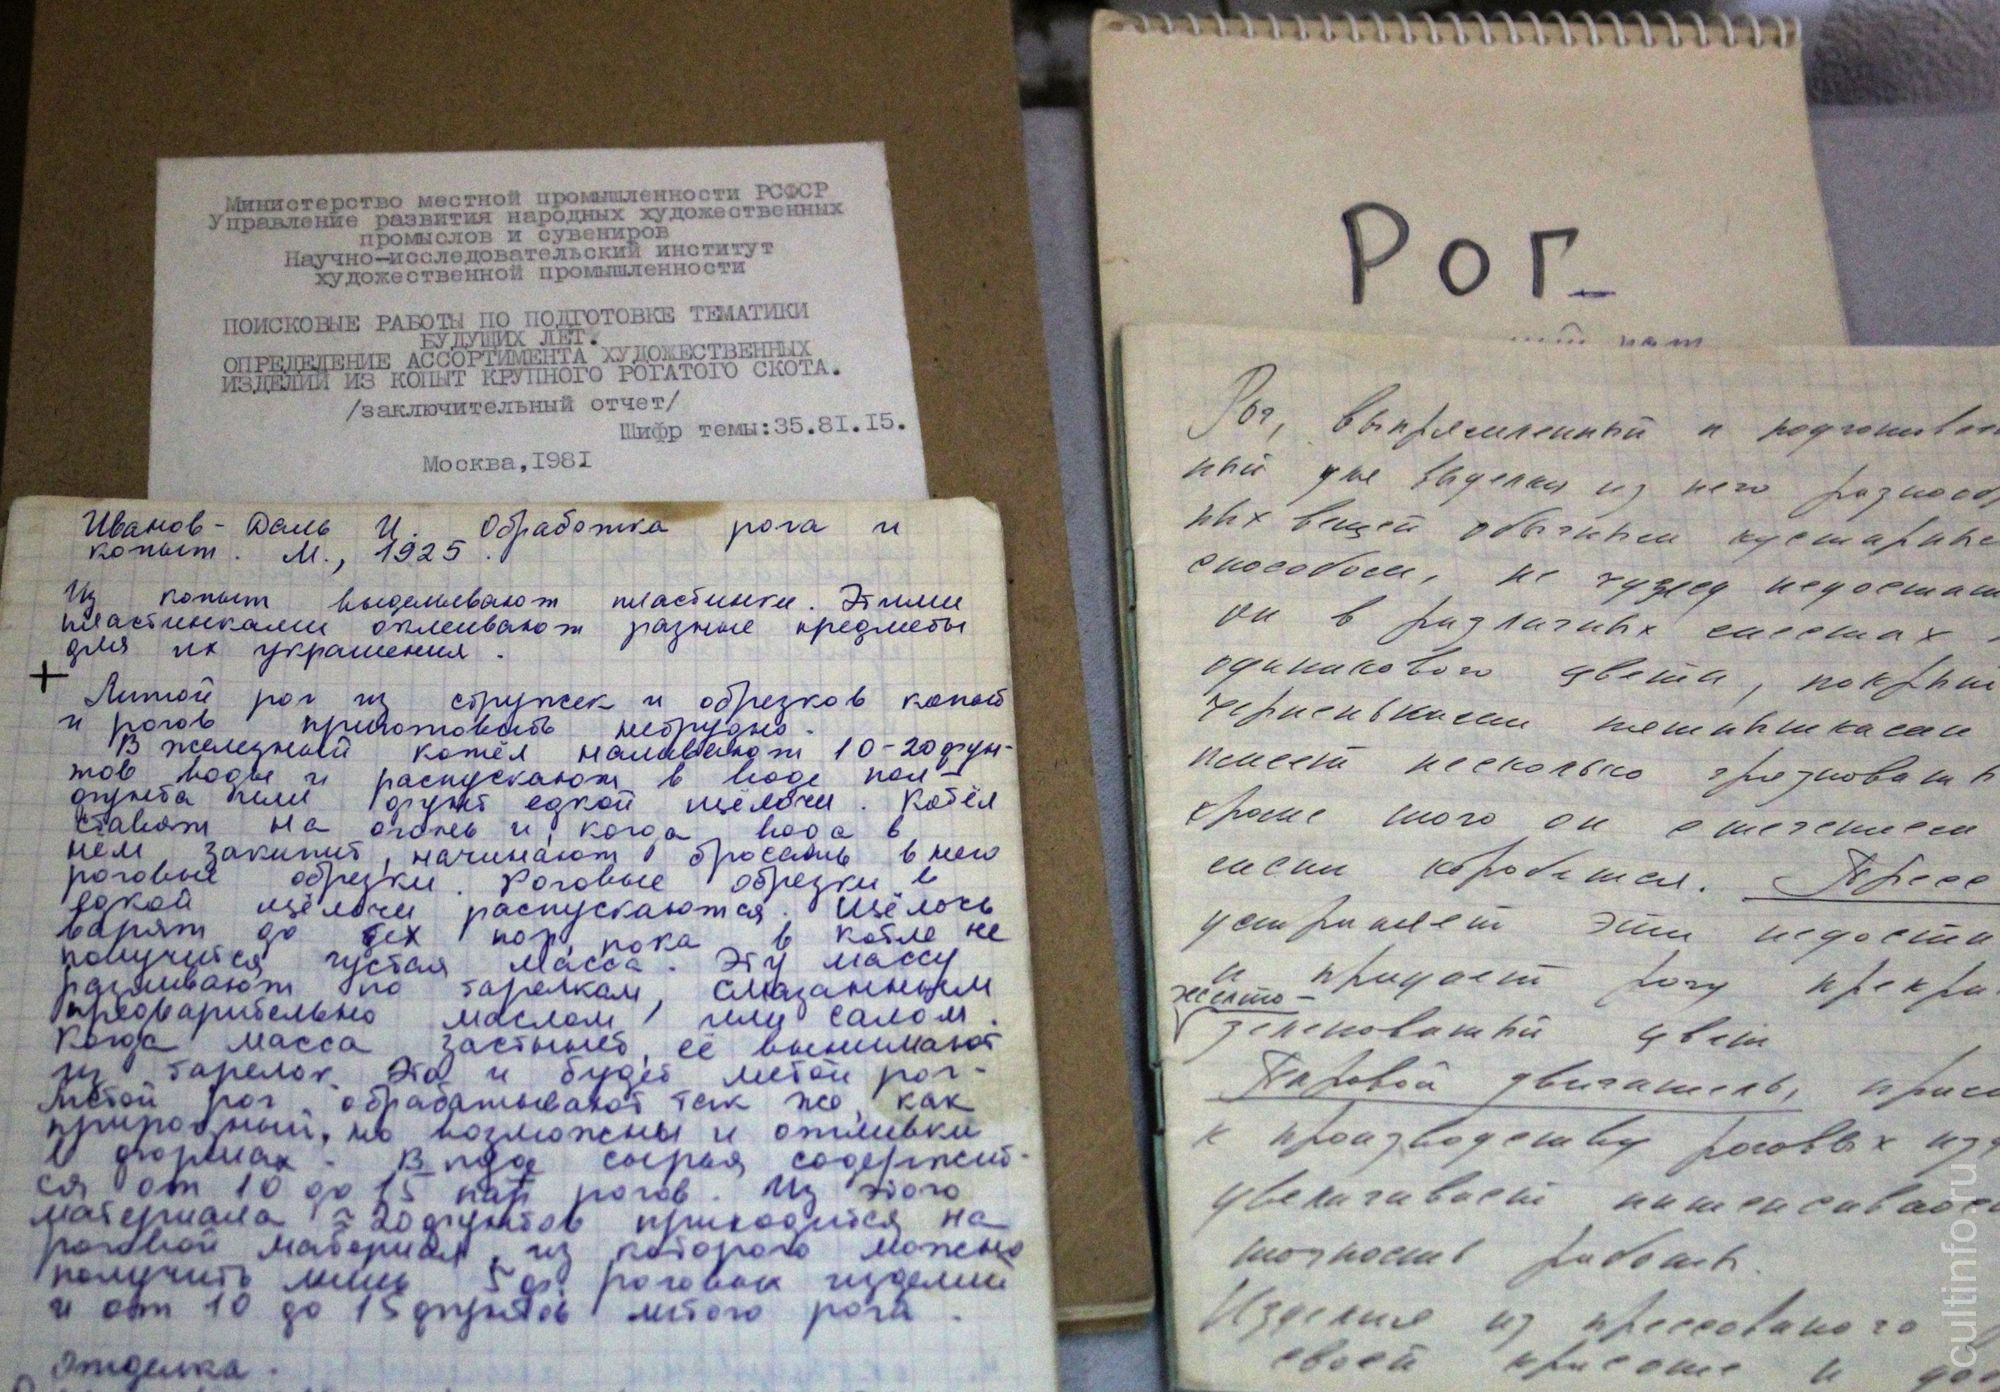 Министерство местной промышленности РСФСР
Управление развития народных художественных
промыслов и сувениров
Научно-исследовательский институт
художественной промышленности
ПОИСКОВЫЕ РАБОТЫ ПО ПОДГОТОВКЕ ТЕМАТИКИ
БУДУЩИХ ЛЕТ.
ОПРЕДЕДЕНИЕ АССОРТИМЕНТА ХУДОЖЕСТВЕННЫХ
ИЗДЕЛИЙ ИЗ КОПЫТ КРУПНОГО РОГАТОГО СКОТА.
/заключительный отчет/
Шифр темы:35.81.15.
Москва,1981
Иванов-Даль И. Обработка рога и
копыт. М., 1925.
Из копыт выделывают пластинки. Этими
пластинками оклеивают разные предметы
для их украшения.
+
Литой рог из стружек и обрезков копыт
и рогов приготовить нетрудно.
В железный котёл наливают 10-20 фун-
тов воды и распускают в воде пол-
фунта или фунт едкой щёлочи. Котёл
ставят на огонь и, когда вода в
нем закипит, начинают бросать в него
роговые обрезки. Роговые обрезки в
едкой щёлочи распускаются. Щёлочь
варят до тех пор, пока в котле не
получится густая масса. Эту массу
разливают по тарелкам, смазанным
предварительно маслом или салом.
Когда масса застынет, её вынимают
из тарелок. Это и будет литой рог.
Литой рог обрабатывают так же, как
природный, но возможны и отливки
в формах. В пуде сырья содержит-
ся от 10 до 15 пар рогов. Из этого
материала ≈ 20 фунтов приходится на
роговой материал, из которого можно
получить лишь 5 ф. роговых изделий
и от 10 до 15 фунтов литого рога.
Отделка.
Рог
Рог, выпрямленный и
ный для выделки из него разнооб
ных вещей обычным кустарны
способом, не чужд недостат
он в различных местах
одинакового цвета, покрыт
черненькими пятнышками
имеет несколько грязноват
кроме того он с течением
мени коробится. Пресс
устраняет эти недоста
и придаёт рогу прекра
желто-
зеленоватый цвет
Паровой двигатель, прис
к производству роговых изд
увеличивает
точность работы.
Изделия из прессованного
своей красоте и
cultinfo.ru